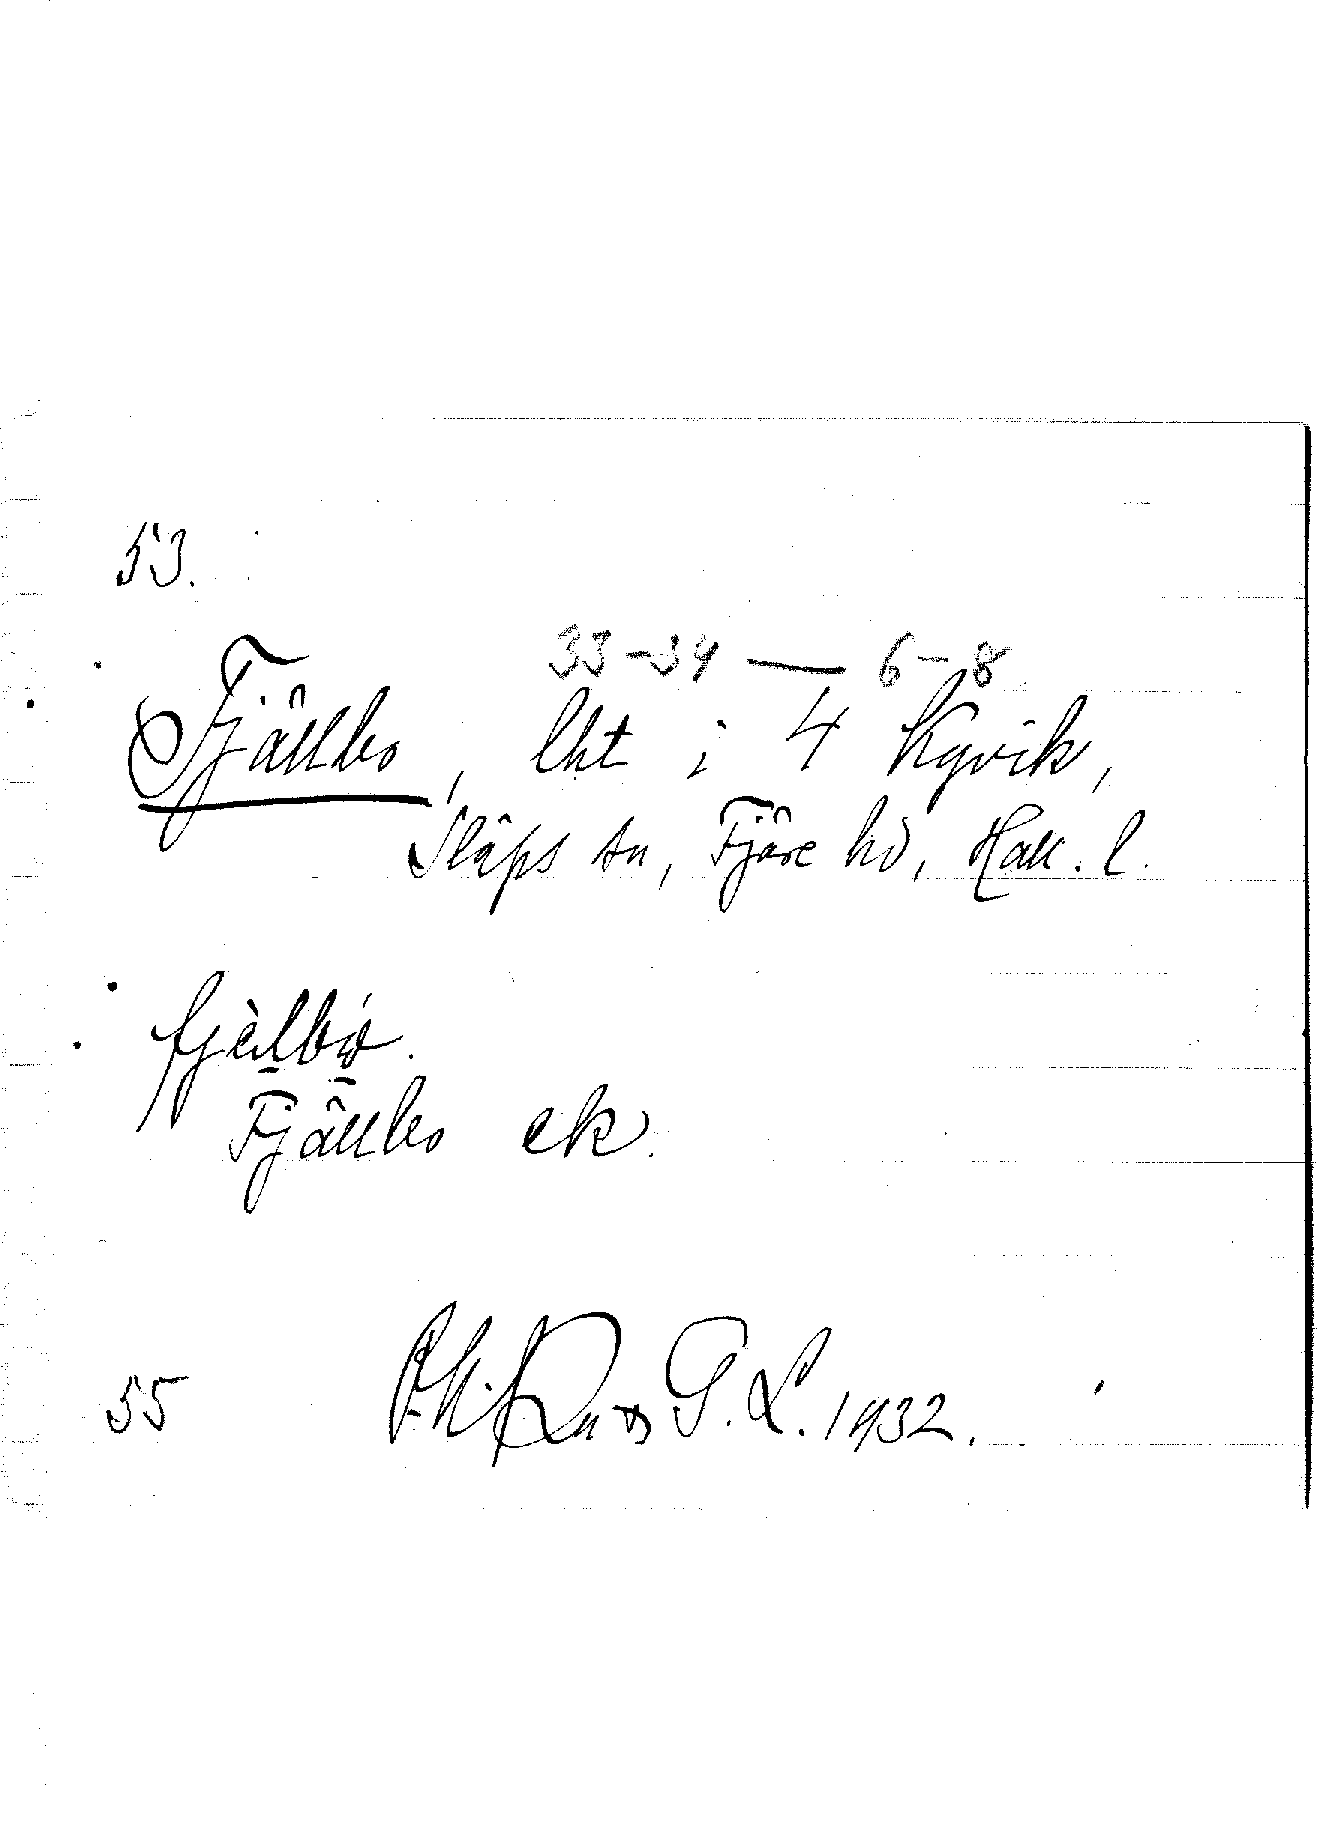 53.
33-34 — 6-8
Fjällbo, lht i 4 Kyvik,
Släps sn, Fjäre hd, Hall. l.
fjèlbó.
Fjällbo ek.
55 G. L. 1932.